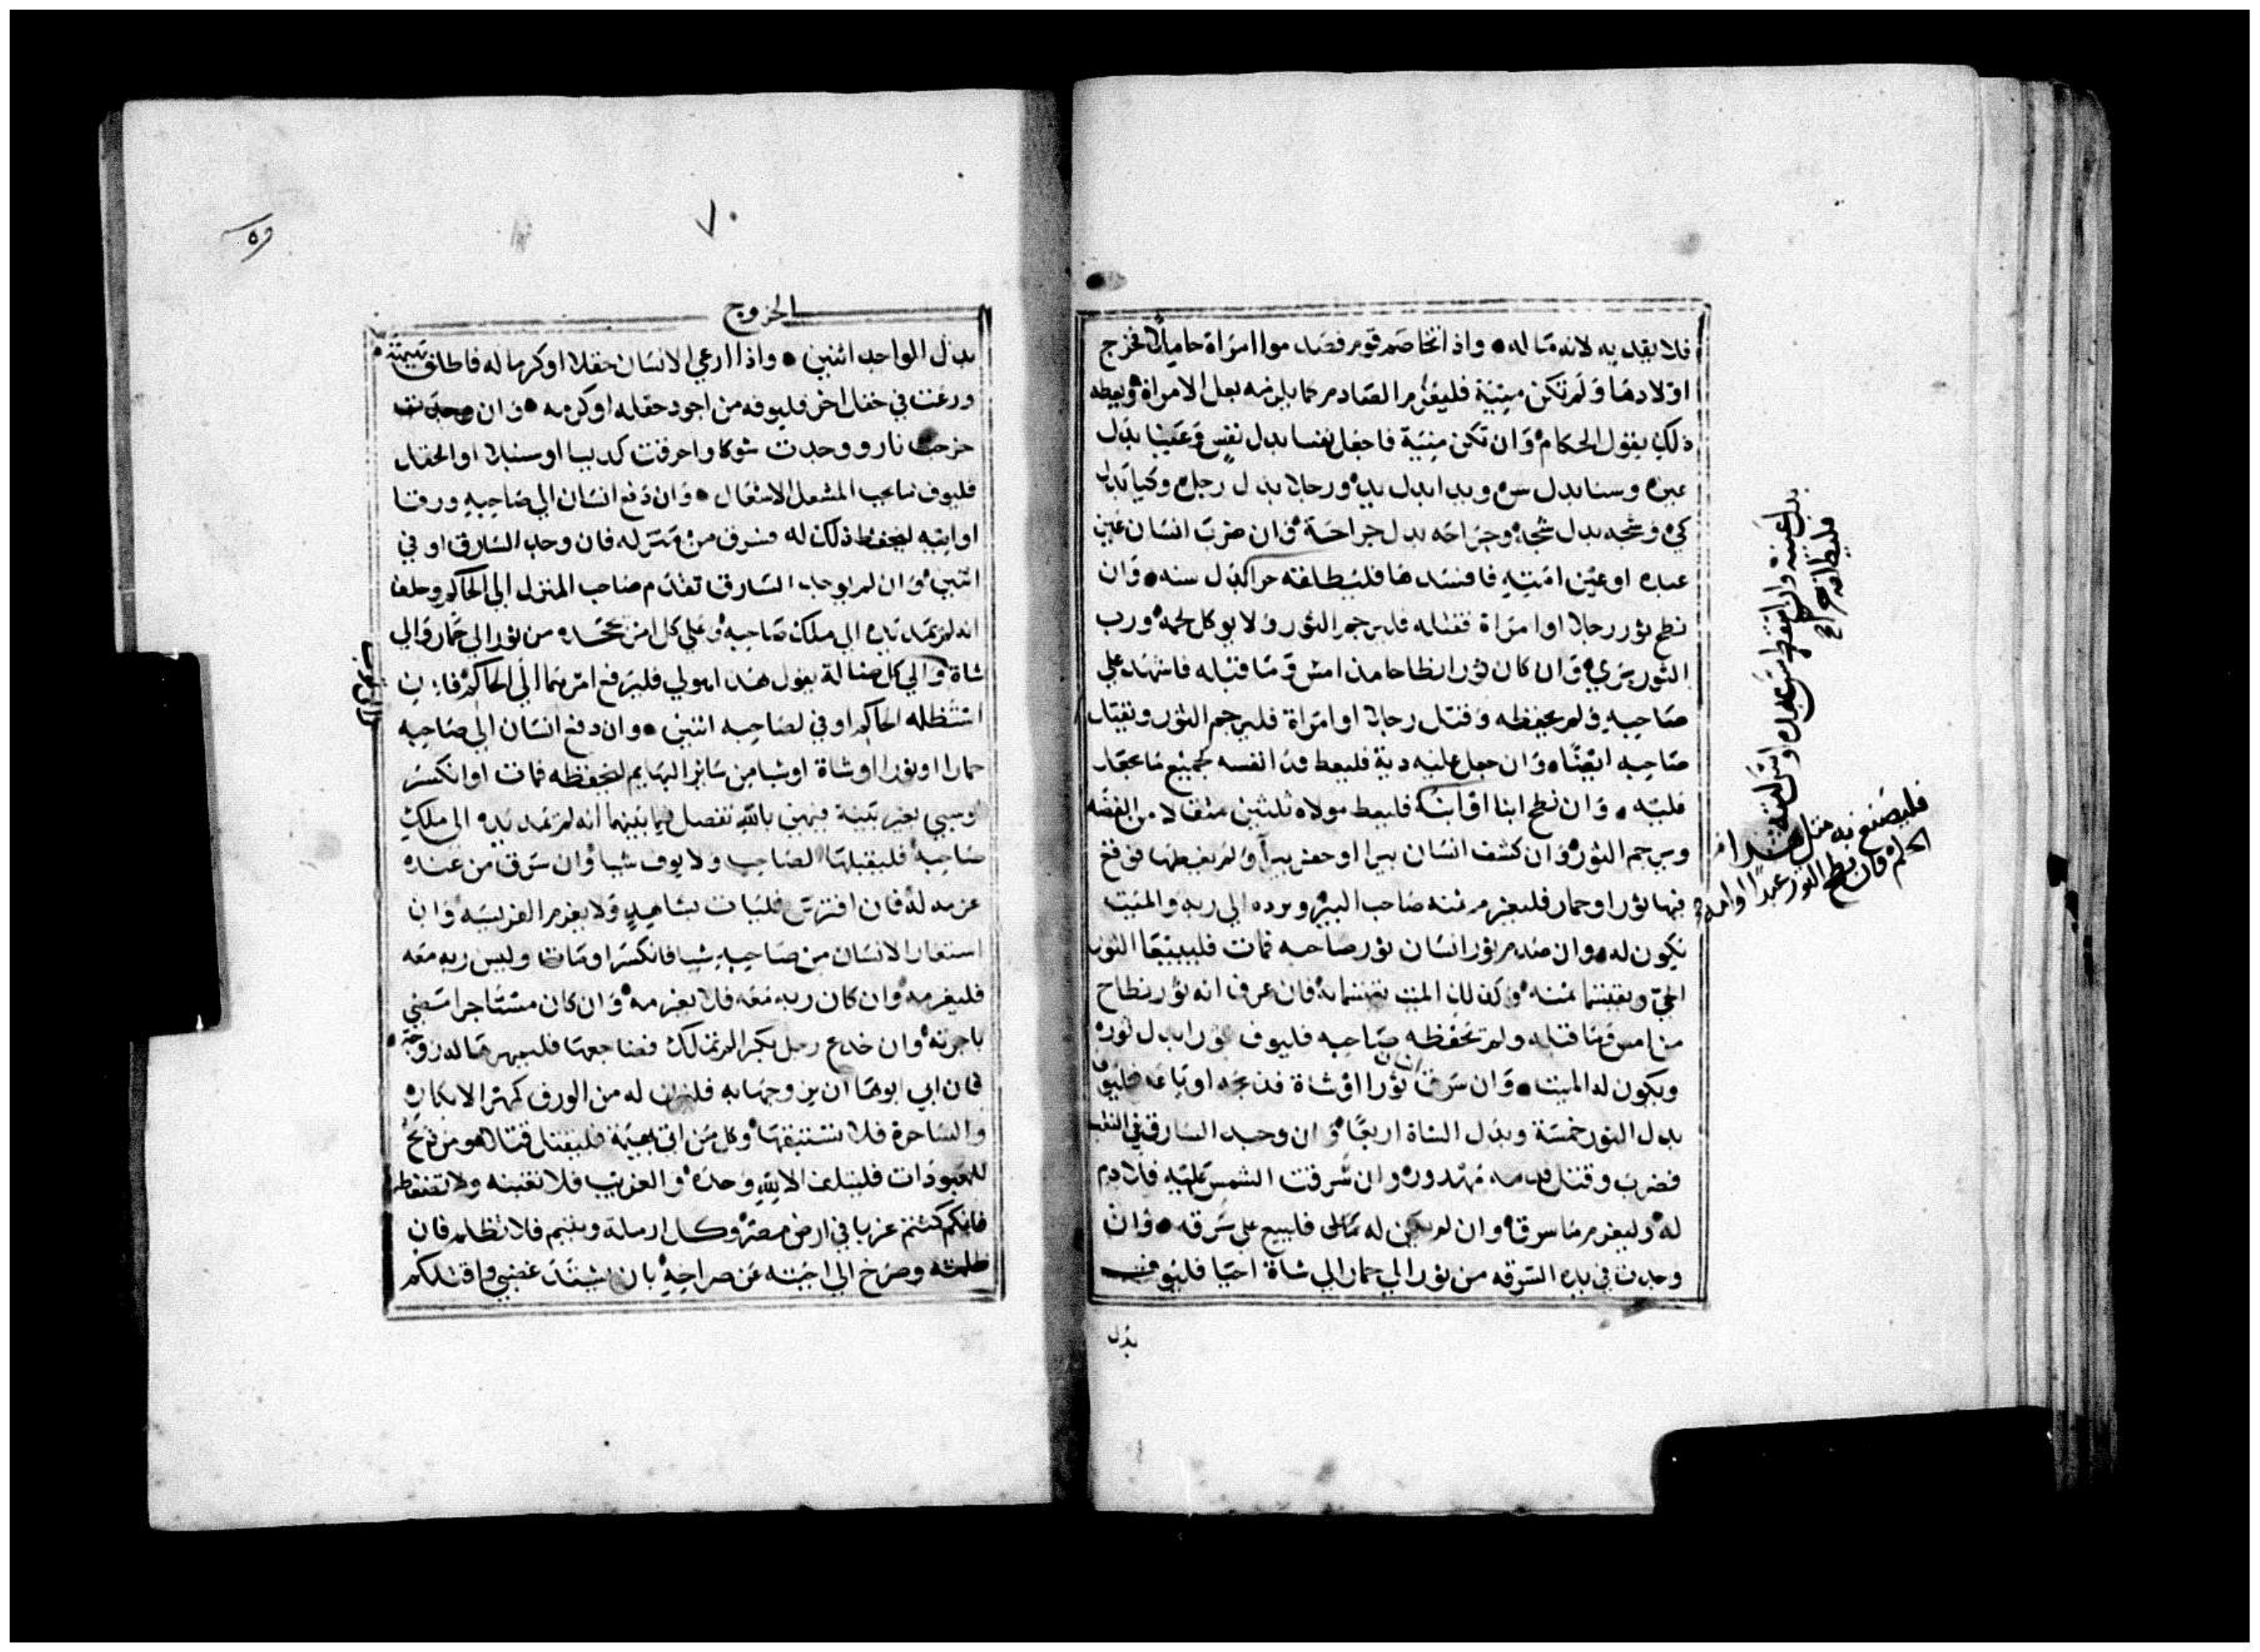 فلا يقيد به لانه ماله • واذا تخاصم قوم فصدموا امراة حاملا فخرج
اولادها ولم تكن ميتة فليغرم الصادم كما يلزمه بعل الامراة ويعطه
ذلك بقول الحكام وان تكن ميتة فاجعل نفسا بدل نفس وعينا بدل
عين وسنا بدل سن ويدا بدل يد ورجلا بدل رجل وكيا بدل
كي وشجه بدل شجة وجراحه بدل جراحة وان ضرب انسان عين
عبده او عين امته فافسدها فليطلقه حرا كبدل سنه • وان
نطح ثور رجلا او امراة فقتله فليرجم الثور ولا يوكل لحمه ورب
الثور بري وان كان ثورا نطاحا منذ امس وما قبله فاشهد علي
صاحبه ولم يحفظه وقتل رجلا او امراة فليرجم الثور ويقتل
صاحبه ايضا • وان جعل عليه دية فليعط فدا نفسه جميع ما يجعل
عليه • وان نطح ابنا او ابنة فليعط مولاه ثلثين مثقالا من الفضه
ويرجم الثور وان كشف انسان بيرا او حفر بيرا ولم يغطها فوقع
فيها ثور او حمار فليغرم ثمنه صاحب البير ويرده الي ربه والميت
يكون له • وان صدم ثور انسان ثور صاحبه فمات فليبيعا الثور
الحي ويقتسما ثمنه وكذلك الميت يقتسمانه فان عرف انه ثور نطاح
من امس وما قبله ولم يحفظه صاحبه فليوف ثورا بدل ثوره
ويكون له الميت • وان سرق انسان ثورا او شاة فذبحه او باعه فليوف
بدل الثور خمسة وبدل الشاة اربعا وان وجد السارق في النقب
فضرب وقتل فدمه مهدور وان شرقت الشمس عليه فلا دم
له وليغرم ما سرق وان لم يكن له مال فليبع علي سرقه • وان
وجدت في يده السرقه من ثور الي حمار الي شاة احيا فليوف
بدل
بدل عينه وان اسقط سن عبده او سن امته
فليطلقه حرا
فليصنع به مثل هذا
الحكم فان نطح الثور عبدا او امة
٧٠
الخروج
بدل الواحد اثنين • واذا ارعي الانسان حقلا او كرما له فاطلق بهيمته
ورعت في حقل اخر فليوفه من اجود حقله او كرمه • وان
خرجت نار ووجدت شوكا واحرقت كديسا او سنبلا او الحقل
فليوف صاحب المشعل الاشعال • وان دفع انسان الي صاحبه ورقا
او انيه ليحفظ ذلك له فسرق من منزله فان وجد السارق اوفي
اثنين وان لم يوجد السارق تقدم صاحب المنزل الي الحاكم وحلف
انه لم يمد يده الي ملك صاحبه وعلي كل امر يجحده من ثور الي حمار والي
شاة والي كل ضالة يقول هذا هو لي فليرفع امرهما الي الحاكم فاذن
استظله الحاكم اوفي لصاحبه اثنين • وان دفع انسان الي صاحبه
حمارا او ثورا او شاة او شيا من ساير البهايم ليحفظه فمات او انكسر
او سبي بغير بينة فيمين بالله تفصل فيما بينهما انه لم يمد يده الي ملك
صاحبه فليقبلها الصاحب ولا يوف شيا وان سرق من عنده
غرمه له فان افترس فليات بشاهد ولا يغرم الفريسه وان
استعار الانسان من صاحبه شيا فانكسر او مات وليس ربه معه
فليغرمه وان كان ربه معه فلا يغرمه وان كان مستاجرا مضي
باجرته وان خدع رجل بكرا لم تملك فضاجعها فليمهرها له زوجة •
فان ابي ابوها ان يزوجها به فليزن له من الورق كمهر الابكار
والساحرة فلا تستبقها وكل من اتي بهيمة فليقتل قتلا ومن ذبح
للمعبودات فليتلف الا لله وحده والغريب فلا تغبنه ولا تضغطه
فانكم كنتم غربا في ارض مصر وكل ارملة ويتيم فلا تظلم فان
ظلمته وصرخ الي اجبته عن صراخه بان يشتد غضبي واقتلكم